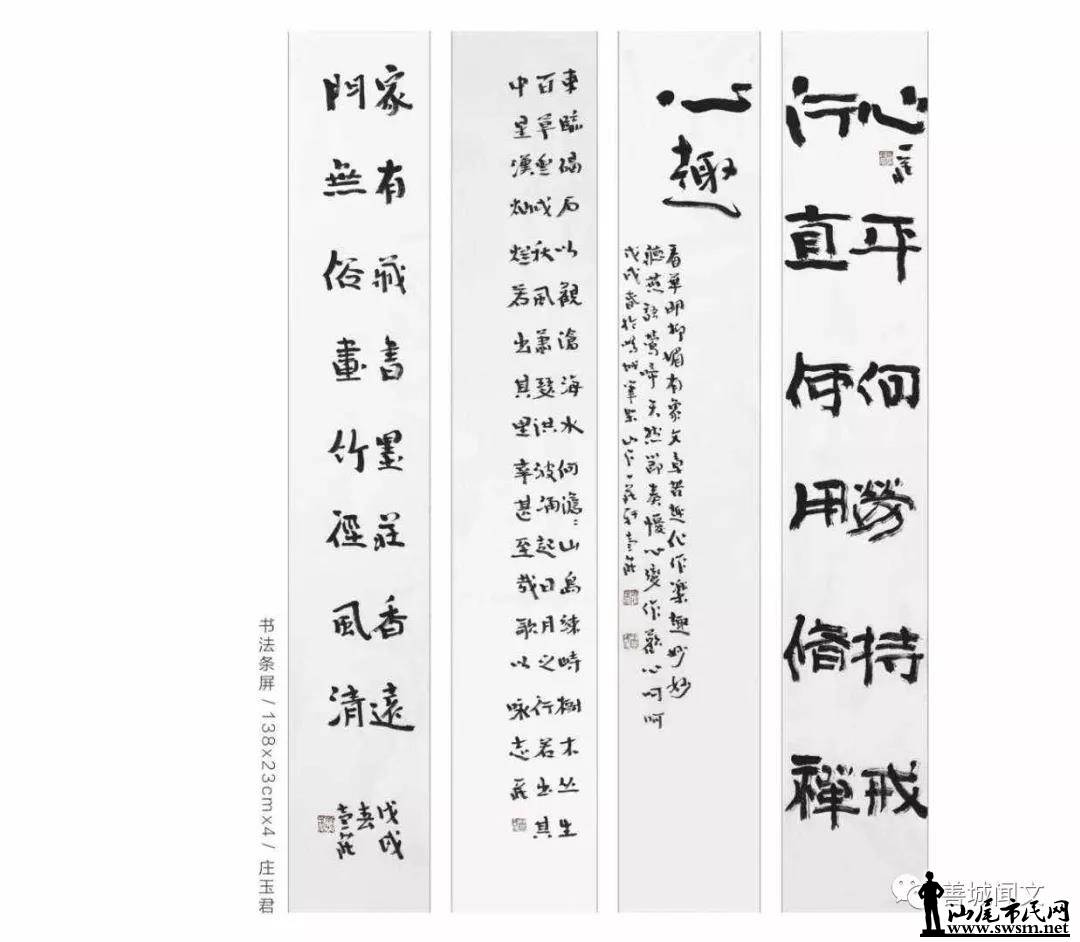 心平何勞持戒
行直何用脩禪
心趣
看華明柳媚有象文章若進化作樂趣妙妙
聽燕語鶯啼天然節奏慢心變作歡心呵呵
戊戌春於鳴城筆架山下一莊軒壹莊
東臨碣石以觀滄海水何澹〻山島竦峙樹木丛生
百草豐茂秋風蕭瑟洪波涌起日月之行若出其
中星漢灿爛若出其里幸甚至哉歌以咏志莊
家有藏書墨莊香遠
門無俗畫竹徑風清
戊戌
春
壹莊
书法条屏 / 138x23cmx4 / 庄玉君
善城闻文
汕尾市民网
www.swsm.net